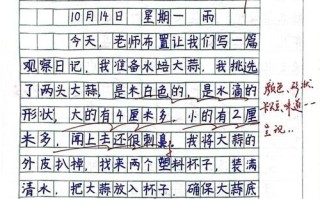 10月14日 星期一 雨
今天，老师布置让我们写一篇
观察日记，我准备水培大蒜，我挑选
了两头大蒜，是米白色的，是水滴的
形状，大的有4厘米多，小的有2厘
米多，闻上去还很刺臭，我将大蒜的
外皮扒掉，找来两个塑料杯子，装满
清水，把大蒜放入杯子，确保大蒜底
颜色、形状
味道……